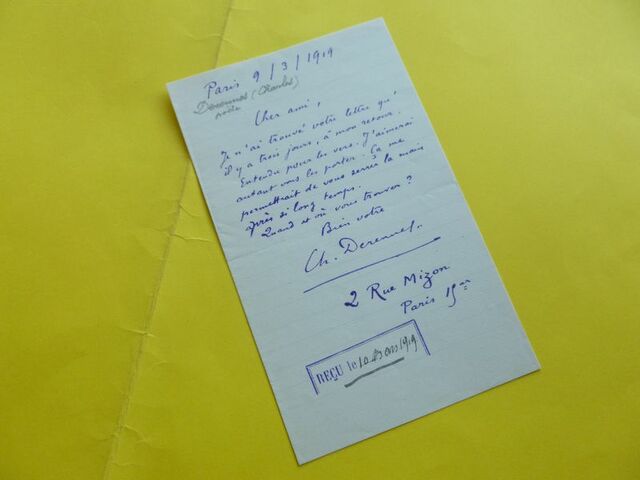 Paris 9/3/1919
Derennes (Charles)
poète
Cher ami,
Je n'ai trouvé votre lettre qu'
il y a trois jours, à mon retour.
Entendu pour les vers. J'aimerai
autant vous les porter. Ça me
permettrait de vous serrer la main
après si long temps.
Quand et où vous trouver ?
Bien votre
Ch. Derennes.
2 Rue Mizon
Paris 15e
REÇU le 10 Mars 1919